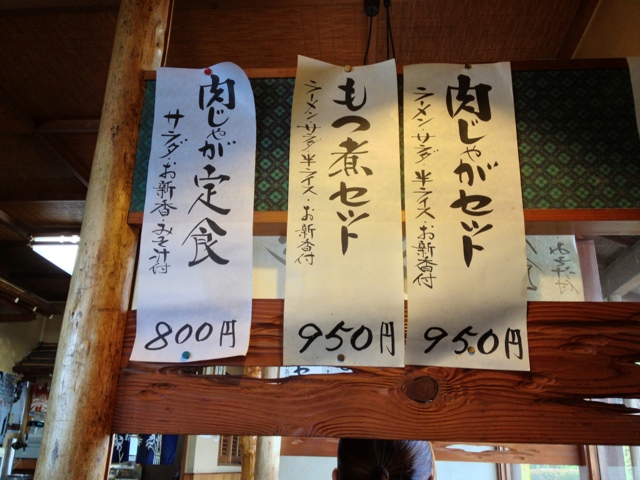 肉じゃがセット
ラーメン・サラダ・半ライス・お新香付
950円
もつ煮セット
ラーメン・サラダ・半ライス・お新香付
950円
肉じゃが定食
サラダ・お新香・みそ汁付
800円